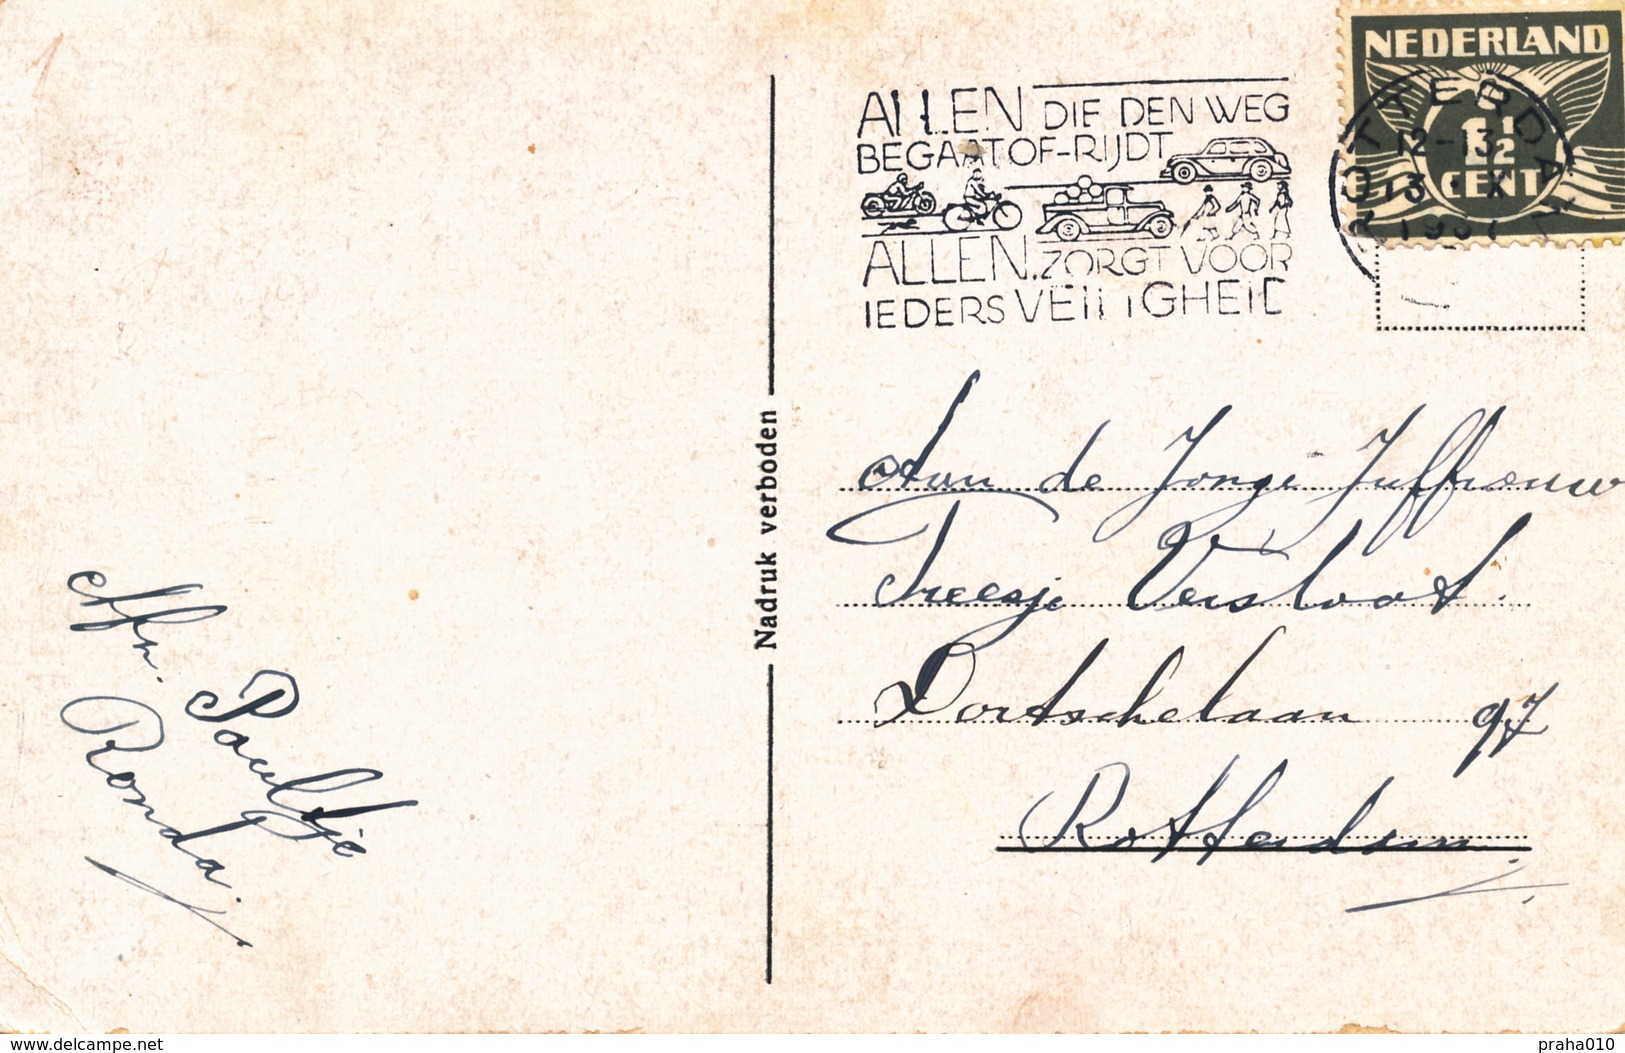 NEDERLAND
1½
CENT
ROTTERDAM
12-13
13 X
1937
ALLEN DIE DEN WEG
BEGAAT OF-RIJDT
ALLEN. ZORGT VOOR
IEDERS VEILIGHEID
Nadruk verboden
Aan de Jonge Juffrouw
Treesje Verstoot.
Dortschelaan 97
Rotterdam
Afz.
Paultje
Ronda.
www.delcampe.net
praha010